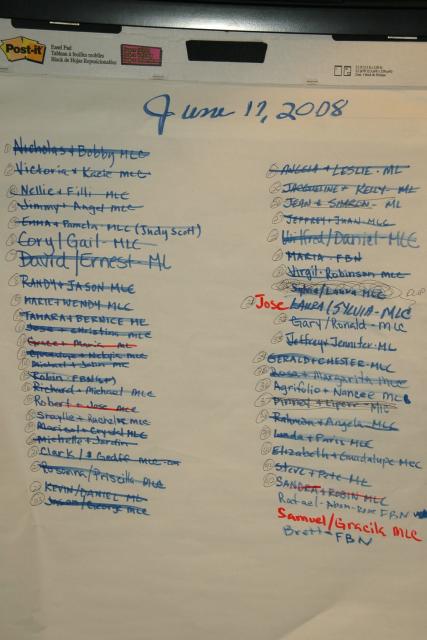 Post-it
Easel Pad
Tableau à feuilles mobiles
Block de Hojas Reposicionables
June 17, 2008
Nicholas + Bobby MLC
Victoria + Kazie MLC
Nellie + Filli MLC
Jimmy + Angel MLC
Emma + Pamela MLC (Judy Scott)
Cory/Gail - MLC
David/Ernest - ML
RANDY + JASON MLC
MARIE + WENDY MLC
TAMARA + BERNICE ML
Jose + Christina MLC
Grace + Maria ML
Guadalupe +
Michael + John MLC
Robin FBN
Richard + Michael MLC
Robert + Jose MLC
Straylle + Rachelle MLC
Maricel + Crystal MLC
Michelle + Jardin
Clark/ Geoff MLC
Rossana/Priscilla MLC
KEVIN/DANIEL ML
Jason/George MLC
ANGELA + LESLIE - ML
JACQUELINE + KELLY - ML
JEAN & SHARON - ML
JEFFREY + JUAN MLC
Wilfred/Daniel - MLC
MARIA - FBN
Virgil - Robinson MLC
Sylvia/Laura MLC
Jose LAURA/SYLVIA - MLC
Gary/Ronald - MLC
Jeffrey + Jennifer - ML
GERALD + CHESTER - MLC
Rosa + Margarita MLC
Agrifolio + Nancee MLC
MLC
Rahman + Angela MLC
Linda + Paris MLC
Elizabeth + Guadalupe MLC
Steve + Pete ML
SANDRA + ROBIN MLC
Rafael - FBN
Samuel/Gracik MLC
Brett - FBN